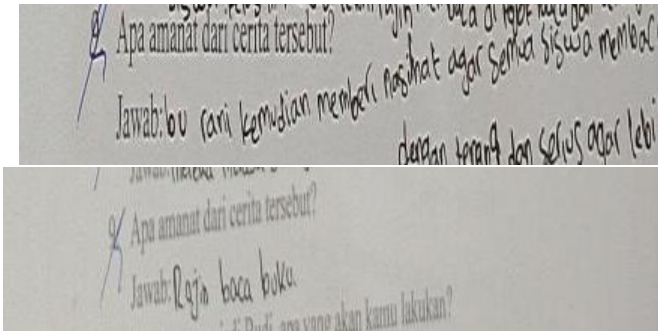 9. Apa amanat dari cerita tersebut?
Jawab: bu rani kemudian memberi nasihat agar semua siswa membac
dengan tenang dan serius agar lebi
Jawab: mereka
9. Apa amanat dari cerita tersebut?
Jawab: Rajin baca buku.
di Rudi, apa yang akan kamu lakukan?